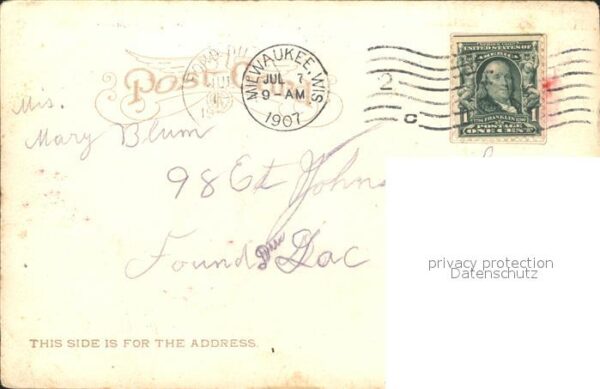 Post Card
MILWAUKEE, WIS
JUL 7
9-AM
1907
2
C
UNITED STATES OF
AMERICA
1 FRANKLIN 1
POSTAGE
ONE CENT
Mis.
Mary Blum
98 Et Johns
Found Du Lac
privacy protection
Datenschutz
THIS SIDE IS FOR THE ADDRESS.